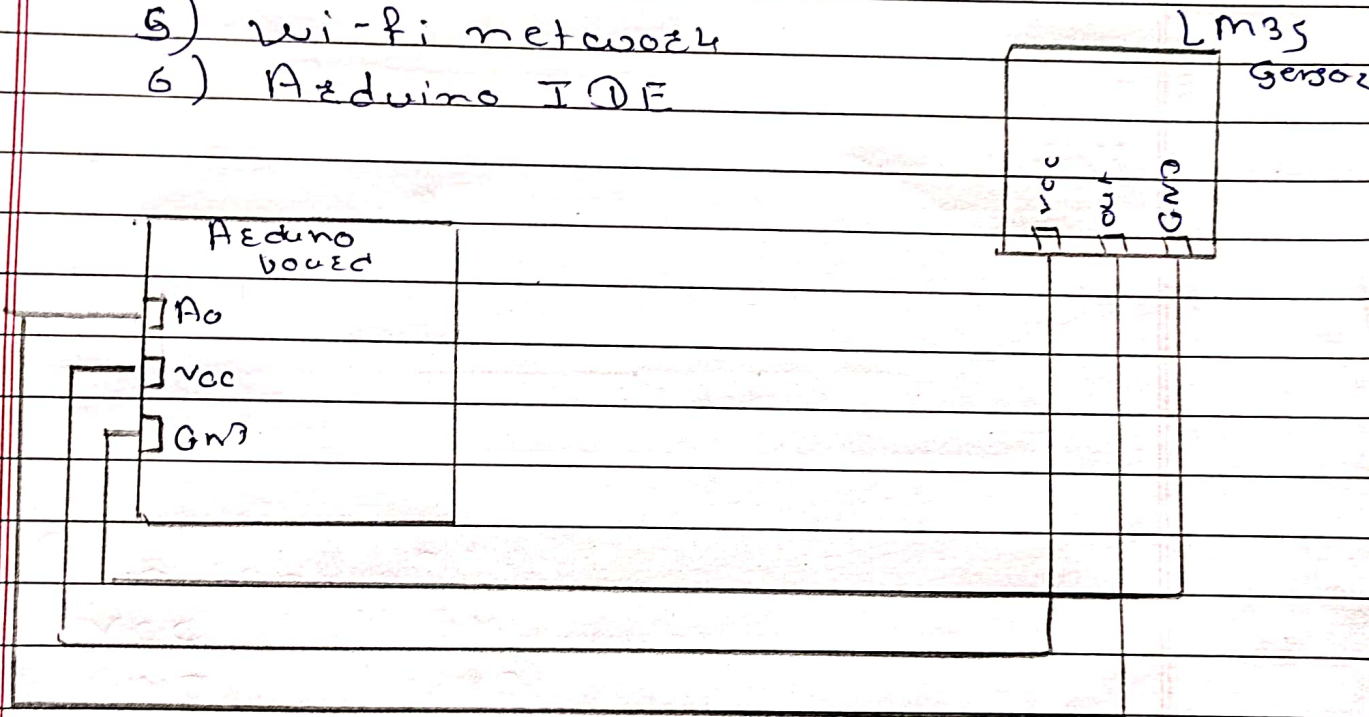 5) Wi-fi network
6) Arduino IDE
LM35
Sensor
Vcc
out
GND
Arduno
board
A0
Vcc
GND